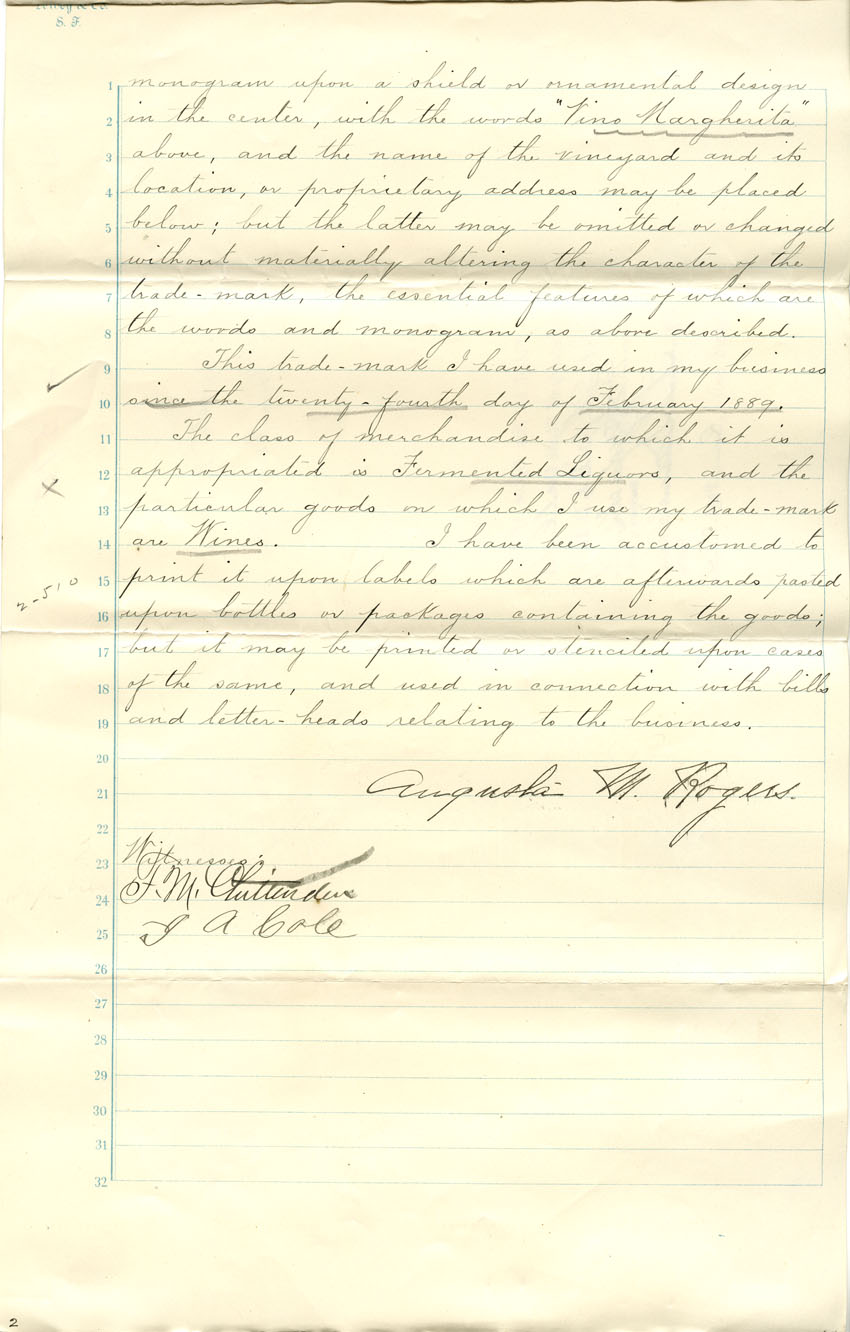 S. F.
1 monogram upon a shield or ornamental design
2 in the center, with the words "Vino Margherita"
3 above, and the name of the vineyard and its
4 location, or proprietary address may be placed
5 below; but the latter may be omitted or changed
6 without materially altering the character of the
7 trade-mark, the essential features of which are
8 the words and monogram, as above described.
9 This trade-mark I have used in my business
10 since the twenty-fourth day of February 1889.
11 The class of merchandise to which it is
12 appropriated is Fermented Liquors, and the
13 particular goods on which I use my trade-mark
14 are Wines. I have been accustomed to
2-510
15 print it upon labels which are afterwards pasted
16 upon bottles or packages containing the goods;
17 but it may be printed or stenciled upon cases
18 of the same, and used in connection with bills
19 and letter-heads relating to the business.
20
21 Augusta M. Rogers.
22
23 Witnesses:
24 F. M. Chittenden
25 J A Cole
26
27
28
29
30
31
32
2